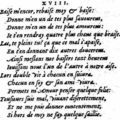 XVIII.
Baise m'encor, rebaise moy & baise:
Donne m'en un de tes plus sauoureus,
Donne m'en un de tes plus amoureus:
Ie t'en rendray quatre plus chaus que braise.
Las, te pleins tu? ça que ce mal i'apaise,
En t'en donnant dix autres doucereus.
Ainsi meslans nos baisers tant heureus
Iouissons nous l'un de l'autre à notre aise.
Lors double vie à chacun en suiura.
Chacun en soy & son ami viura.
Permets m'Amour penser quelque folie:
Tousiours suis mal, viuant discrettement,
Et ne me puis donner contentement,
Si hors de moy ne fay quelque saillie.